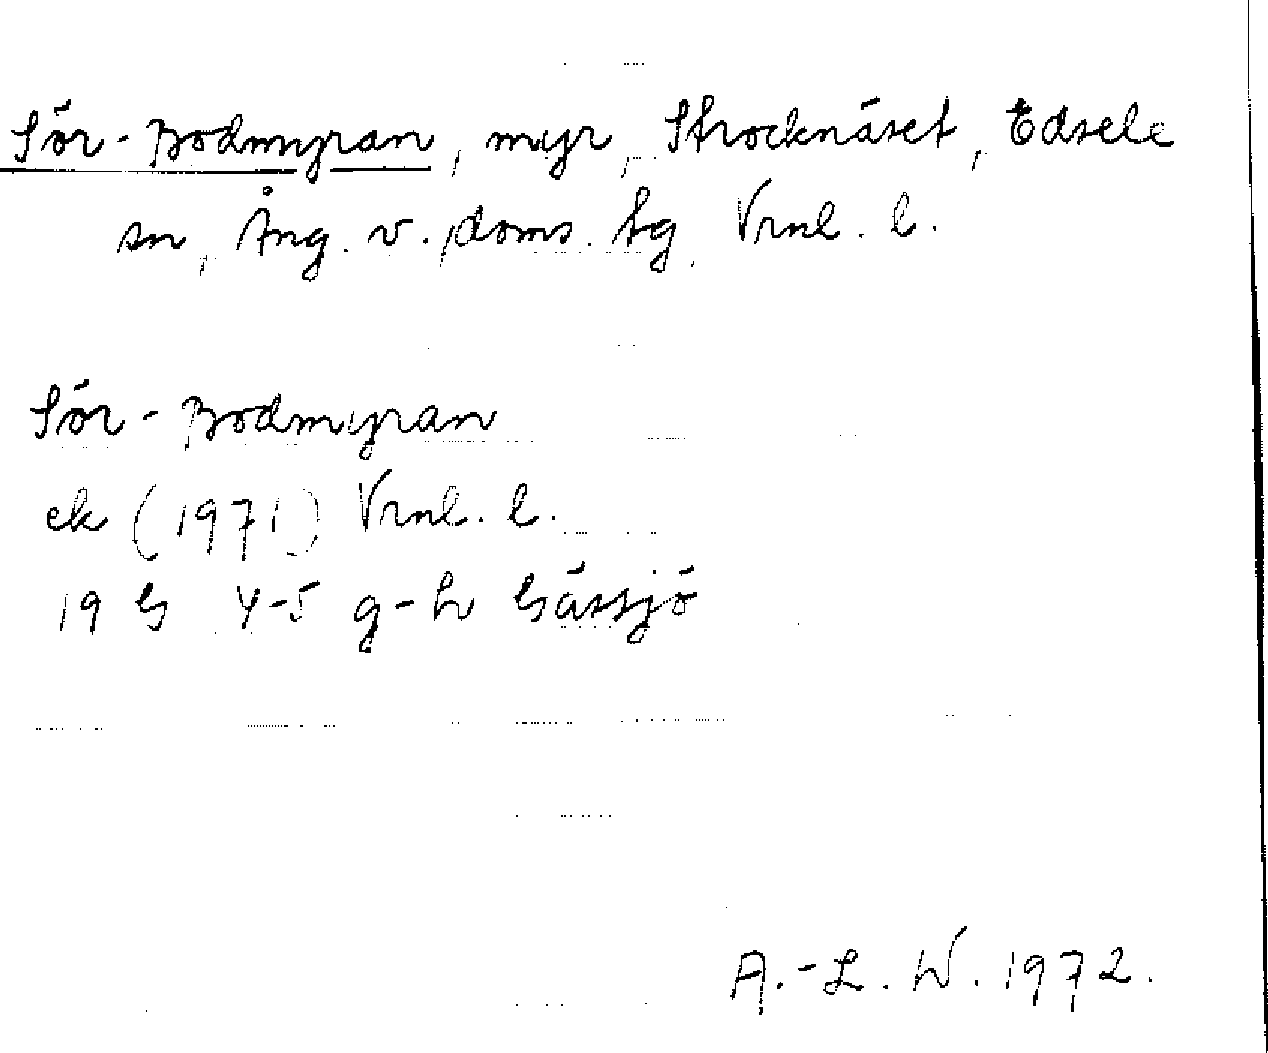 Sör-Bodmyran, myr, Strocknäset, Edsele
sn, Ång. v., doms. tg. Vrnl. l.
Sör-Bodmyran
ek (1971) Vrnl. l.
19 G 4-5 g-h Gåssjö
A.-L. W. 1972.